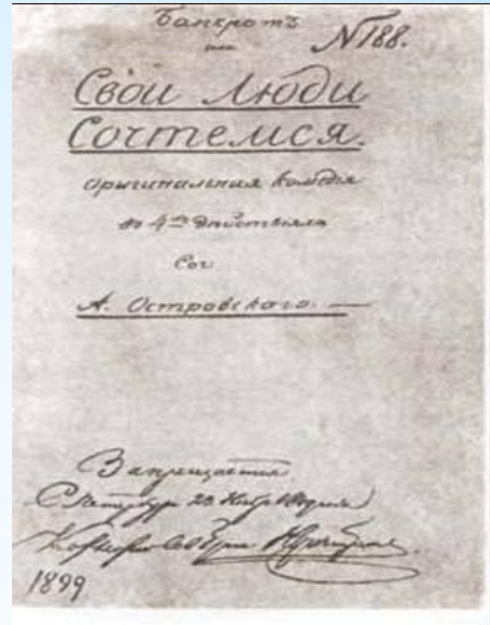 Банкротъ
или
№188.
Свои люди
Сочтемся.
Оригинальная комедія
въ 4хъ действіяхъ
Соч
А. Островскаго.
Запрещается
С Петербург 23 Нояб
1899